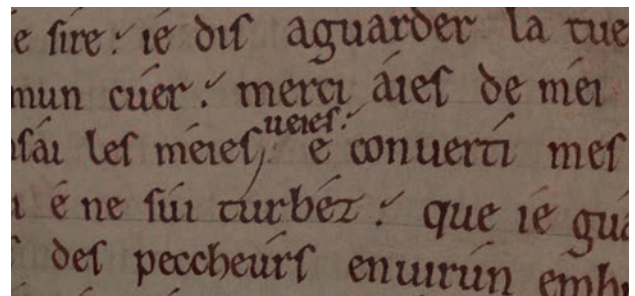 e sire: ié dis aguarder la tue
mun cúer: merci áies de méi
sái les méies ueies: e conuerti mes
é ne súi turbéz: que ié guá
des peccheúrs enuirún embr